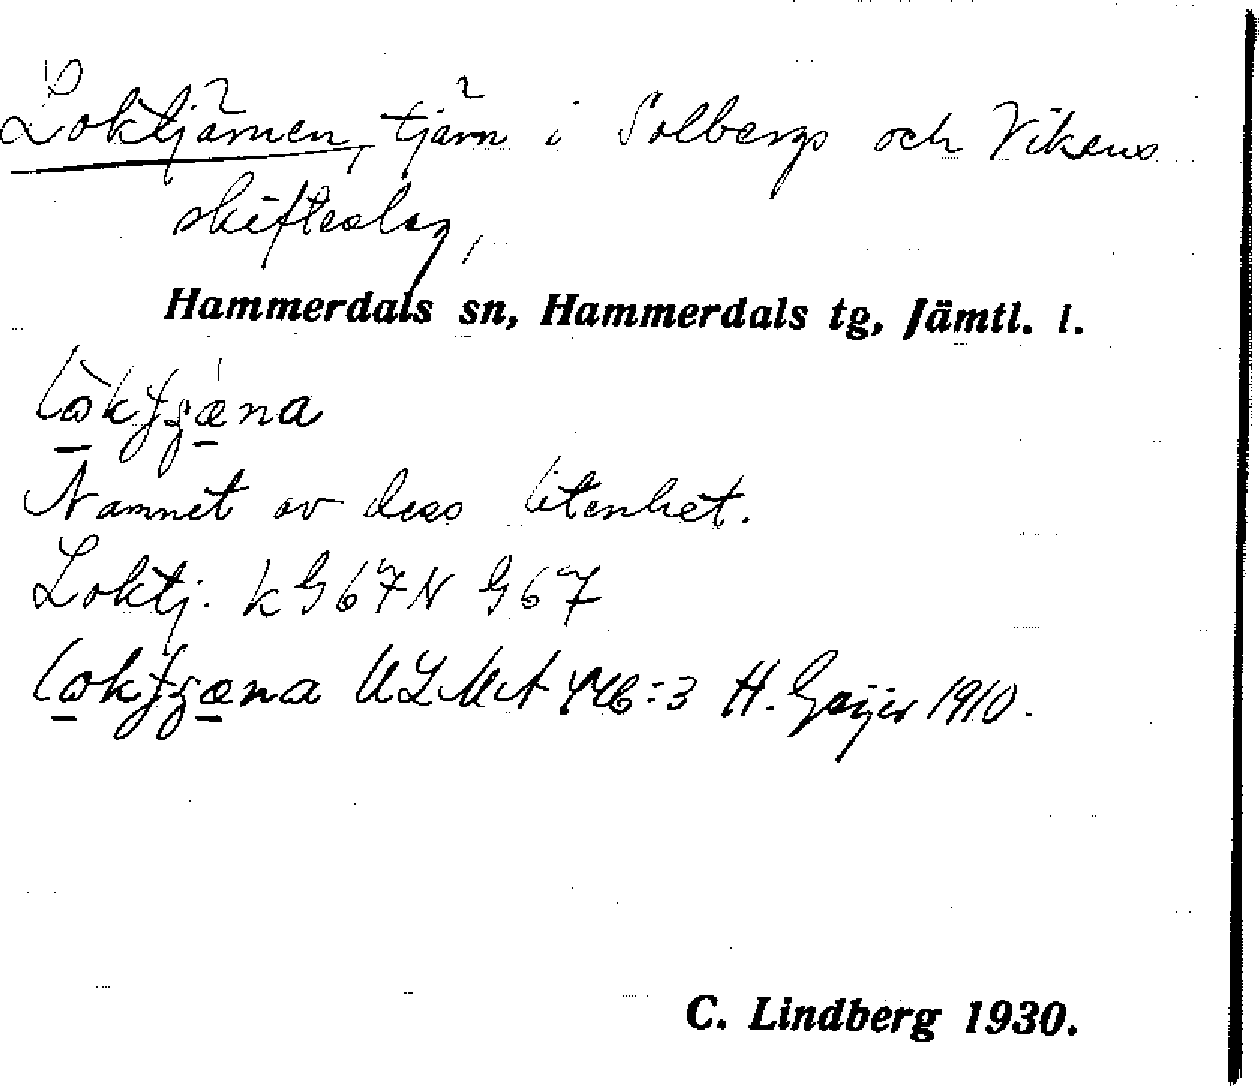 Loktjärnen, tjärn i Solbergs och Vikens
skifteslag,
Hammerdals sn, Hammerdals tg, Jämtl. l.
Namnet av dess litenhet.
Loktj. k G67N G67
ULMA 446:3 H. Geijer 1910.
C. Lindberg 1930.